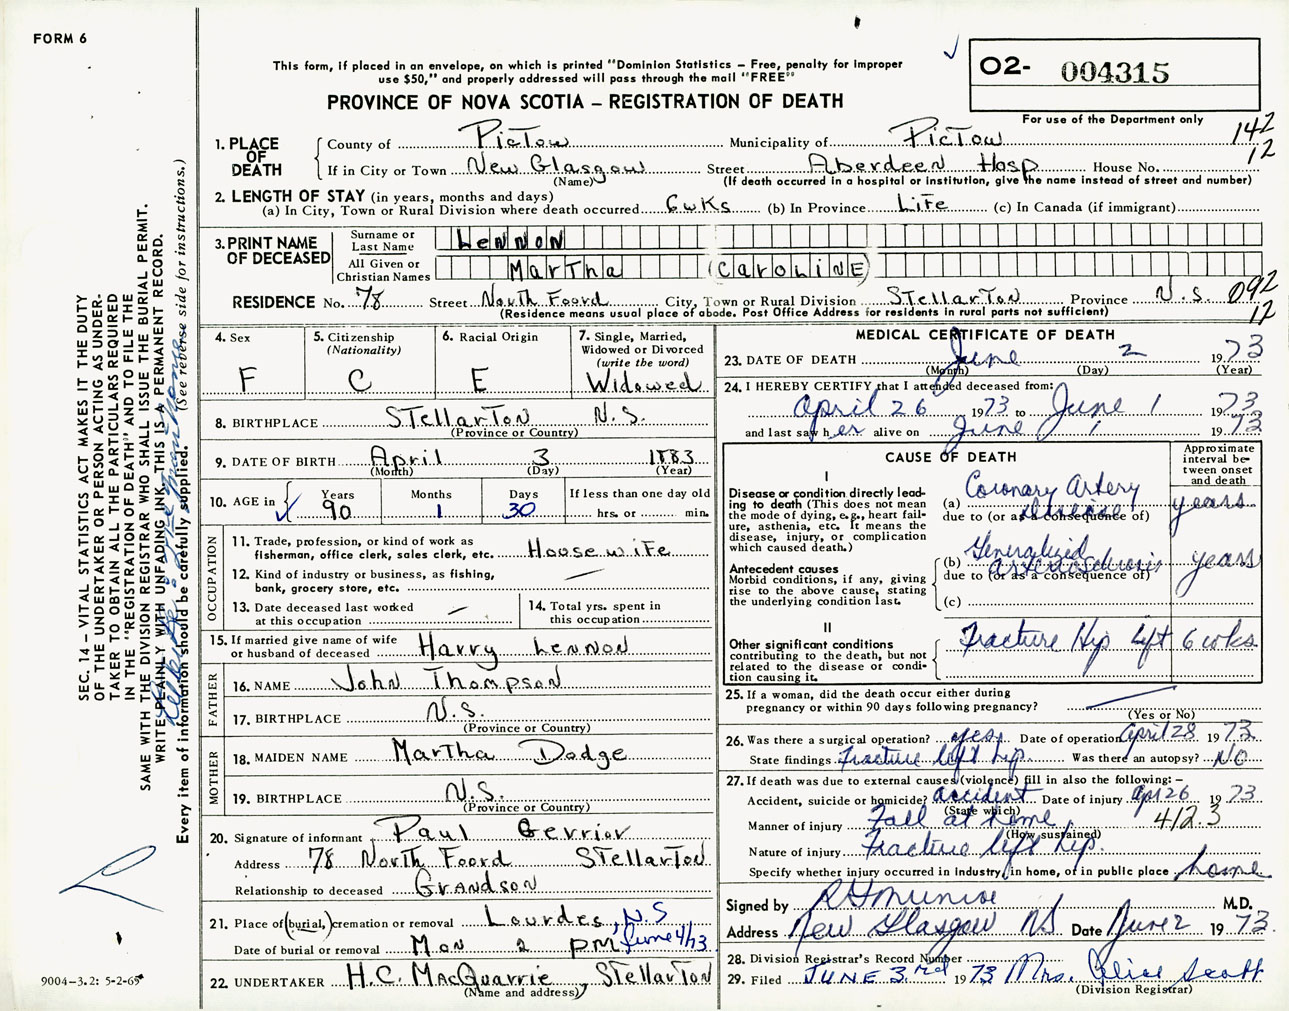 FORM 6
This form, if placed in an envelope, on which is printed "Dominion Statistics – Free, penalty for improper
use $50," and properly addressed will pass through the mail "FREE"
PROVINCE OF NOVA SCOTIA – REGISTRATION OF DEATH
O2- 004315
For use of the Department only
142
12
1. PLACE OF DEATH
County of PicTou Municipality of PicTou
If in City or Town New Glasgow Street Aberdeen Hosp House No.
(Name) (If death occurred in a hospital or institution, give the name instead of street and number)
2. LENGTH OF STAY (in years, months and days)
(a) In City, Town or Rural Division where death occurred 6wKs (b) In Province Life (c) In Canada (if immigrant)
3. PRINT NAME OF DECEASED
Surname or Last Name LeNNON
All Given or Christian Names MarTha (CAROLiNE)
RESIDENCE No. 78 Street North Foord City, Town or Rural Division STellarTon Province N.S. 092
(Residence means usual place of abode. Post Office Address for residents in rural parts not sufficient) 12
4. Sex F
5. Citizenship (Nationality) C
6. Racial Origin E
7. Single, Married, Widowed or Divorced (write the word) Widowed
8. BIRTHPLACE STellarTon N.S.
(Province or Country)
9. DATE OF BIRTH April 3 1883
(Month) (Day) (Year)
10. AGE in Years 90 Months 1 Days 30 If less than one day old hrs. or min.
OCCUPATION
11. Trade, profession, or kind of work as fisherman, office clerk, sales clerk, etc. Housewife
12. Kind of industry or business, as fishing, bank, grocery store, etc. —
13. Date deceased last worked at this occupation —
14. Total yrs. spent in this occupation
15. If married give name of wife or husband of deceased Harry Lennon
FATHER
16. NAME John Thompson
17. BIRTHPLACE N.S.
(Province or Country)
MOTHER
18. MAIDEN NAME Martha Dodge
19. BIRTHPLACE N.S.
(Province or Country)
20. Signature of informant Paul Gerrior
Address 78 North Foord STellarTon
Relationship to deceased Grandson
21. Place of (burial,) cremation or removal Lourdes, N.S
Date of burial or removal Mon 2 PM June 4/73
22. UNDERTAKER H.C. MacQuarrie, STellarTon
(Name and address)
MEDICAL CERTIFICATE OF DEATH
23. DATE OF DEATH June 2 1973
(Month) (Day) (Year)
24. I HEREBY CERTIFY that I attended deceased from:
April 26 1973 to June 1 1973
and last saw her alive on June 1 1973
CAUSE OF DEATH
Approximate interval between onset and death
I
Disease or condition directly lead-
ing to death (This does not mean
the mode of dying, e.g., heart fail-
ure, asthenia, etc. It means the
disease, injury, or complication
which caused death.)
(a) Coronary Artery Disease years
due to (or as a consequence of)
Antecedent causes
Morbid conditions, if any, giving
rise to the above cause, stating
the underlying condition last.
(b) Generalized Arteriosclerosis years
due to (or as a consequence of)
(c)
II
Other significant conditions
contributing to the death, but not
related to the disease or condi-
tion causing it.
Fracture Hip left 6 wks.
25. If a woman, did the death occur either during
pregnancy or within 90 days following pregnancy?
(Yes or No)
26. Was there a surgical operation? yes. Date of operation April 28 1973
State findings Fracture left hip. Was there an autopsy? NO
27. If death was due to external causes (violence) fill in also the following: –
Accident, suicide or homicide? accident Date of injury Apr 26 1973
(State which)
Manner of injury Fall at home 412.3
(How sustained)
Nature of injury Fracture left hip.
Specify whether injury occurred in Industry, in home, or in public place home
Signed by RH Munroe M.D.
Address New Glasgow NS Date June 2 1973
28. Division Registrar's Record Number
29. Filed JUNE 3rd 1973 Mrs. Alice Scott
(Division Registrar)
SEC. 14 – VITAL STATISTICS ACT MAKES IT THE DUTY
OF THE UNDERTAKER OR PERSON ACTING AS UNDER-
TAKER TO OBTAIN ALL THE PARTICULARS REQUIRED
IN THE "REGISTRATION OF DEATH" AND TO FILE THE
SAME WITH THE DIVISION REGISTRAR WHO SHALL ISSUE THE BURIAL PERMIT.
WRITE PLAINLY WITH UNFADING INK. THIS IS A PERMANENT RECORD.
Every item of information should be carefully supplied. (See reverse side for instructions.)
9004-3.2: 5-2-69